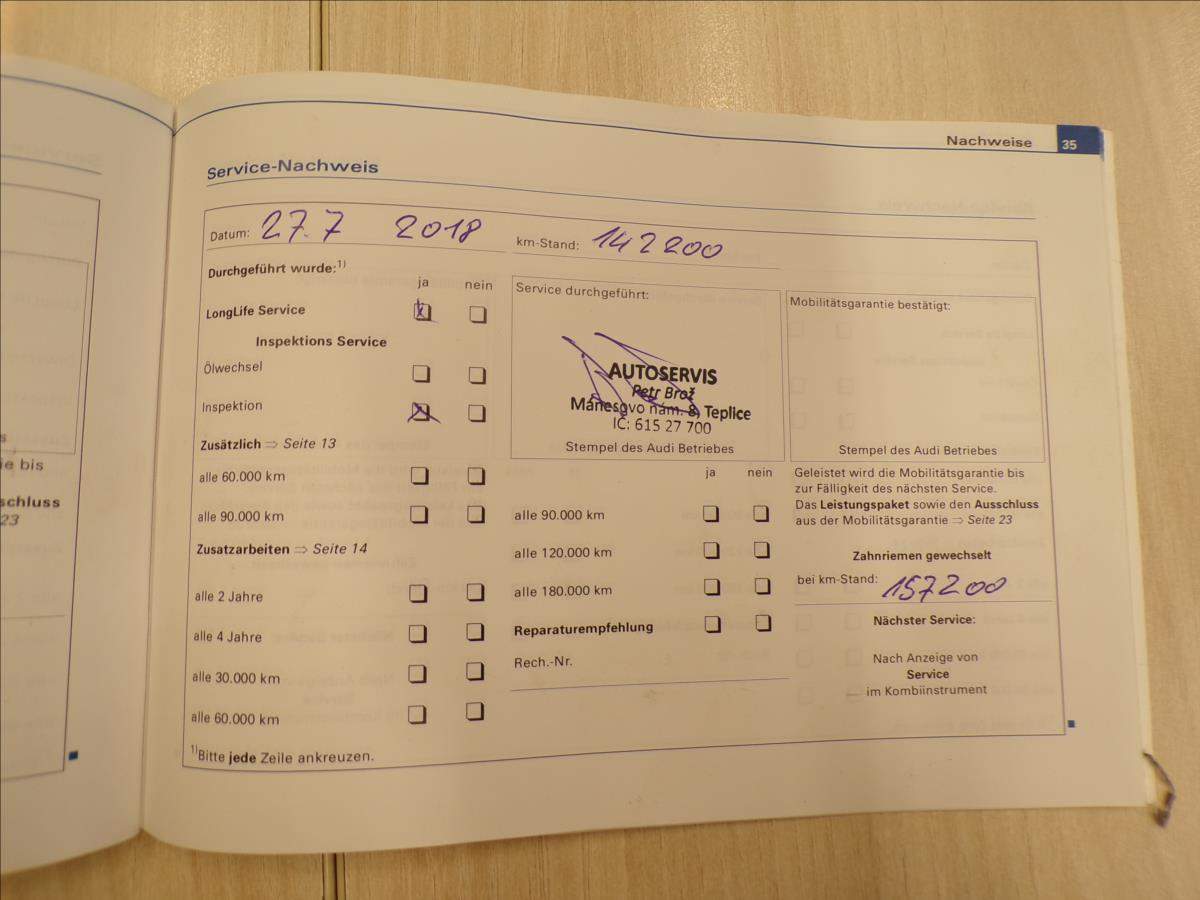 Nachweise 35
Service-Nachweis
Datum: 27.7 2018 km-Stand: 142200
Durchgeführt wurde:1)
ja nein
LongLife Service
Inspektions Service
Ölwechsel
Inspektion
Zusätzlich ⇒ Seite 13
alle 60.000 km
alle 90.000 km
Zusatzarbeiten ⇒ Seite 14
alle 2 Jahre
alle 4 Jahre
alle 30.000 km
alle 60.000 km
1)Bitte jede Zeile ankreuzen.
Service durchgeführt:
AUTOSERVIS
Petr Brož
Mánesovo nám. 8, Teplice
IČ: 615 27 700
Stempel des Audi Betriebes
ja nein
alle 90.000 km
alle 120.000 km
alle 180.000 km
Reparaturempfehlung
Rech.-Nr.
Mobilitätsgarantie bestätigt:
Stempel des Audi Betriebes
Geleistet wird die Mobilitätsgarantie bis
zur Fälligkeit des nächsten Service.
Das Leistungspaket sowie den Ausschluss
aus der Mobilitätsgarantie ⇒ Seite 23
Zahnriemen gewechselt
bei km-Stand: 157200
Nächster Service:
Nach Anzeige von
Service
im Kombiinstrument
ie bis
schluss
23